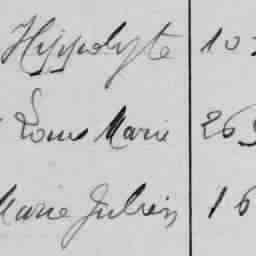 Hyppolyte 10
Louis Marie 26
Marie Julien 16